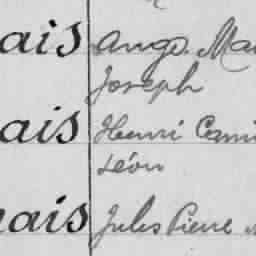 ais Ange Ma
Joseph
ais Henri Cami
Léon
nais Jules Pierre